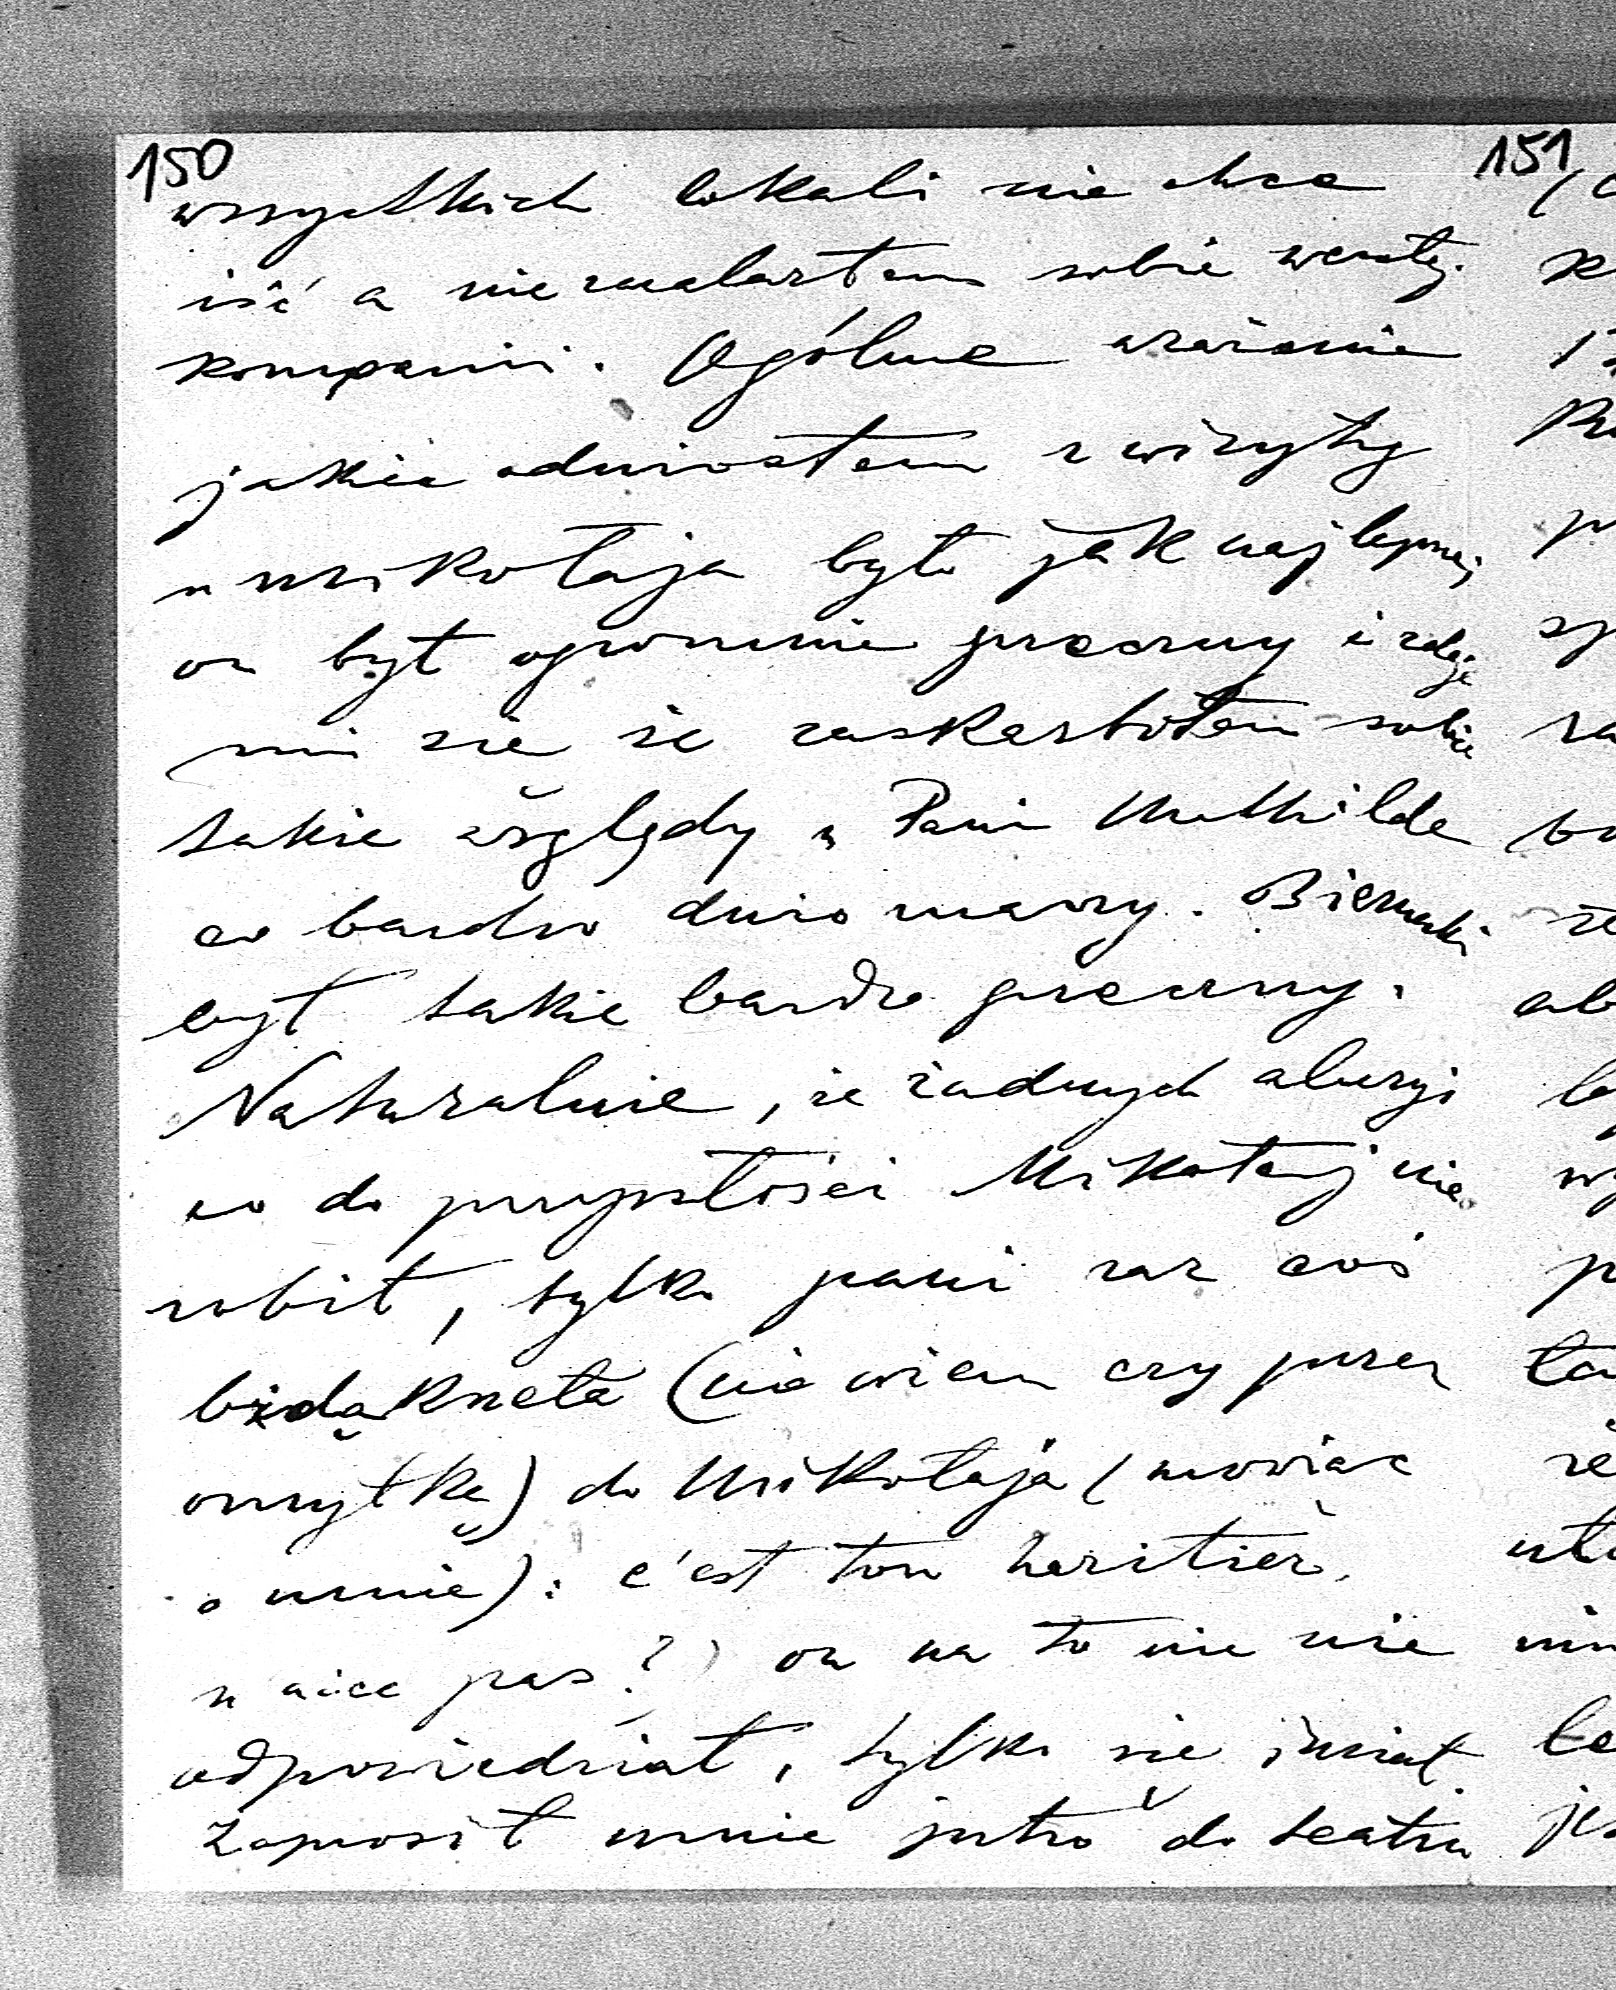 150
151
wszystkich lokali nie chce
iść a nie znalazłem sobie wesołej
kompanii. Ogólne wrażenie
jakie odniosłem z wizyty
u Mikołaja było jak najlepsze,
on był ogromnie grzeczny i zdaje
mi się że zaskarbiłem sobie
takie względy u Pani Mathilde
co bardzo dużo znaczy. Biernacki
był także bardzo grzeczny.
Naturalnie, że żadnych aluzji
co do przyszłości Mikołaj nie
robił, tylko pani raz coś
bąknęła (nie wiem czy przez
omyłkę) do Mikołaja (mówiąc
o mnie): c'est ton heritier,
n'aice pas? on na to nic nie
odpowiedział, tylko się śmiał.
Zaprosił mnie jutro do teatru